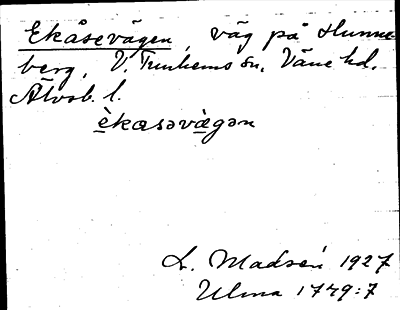 Ekåsevägen, väg på Hunne
berg, V. Tunhems sn, Väne hd.
Älvsb. l.
èkasəvàgən
L. Madsén 1927
Ulma 1749:7